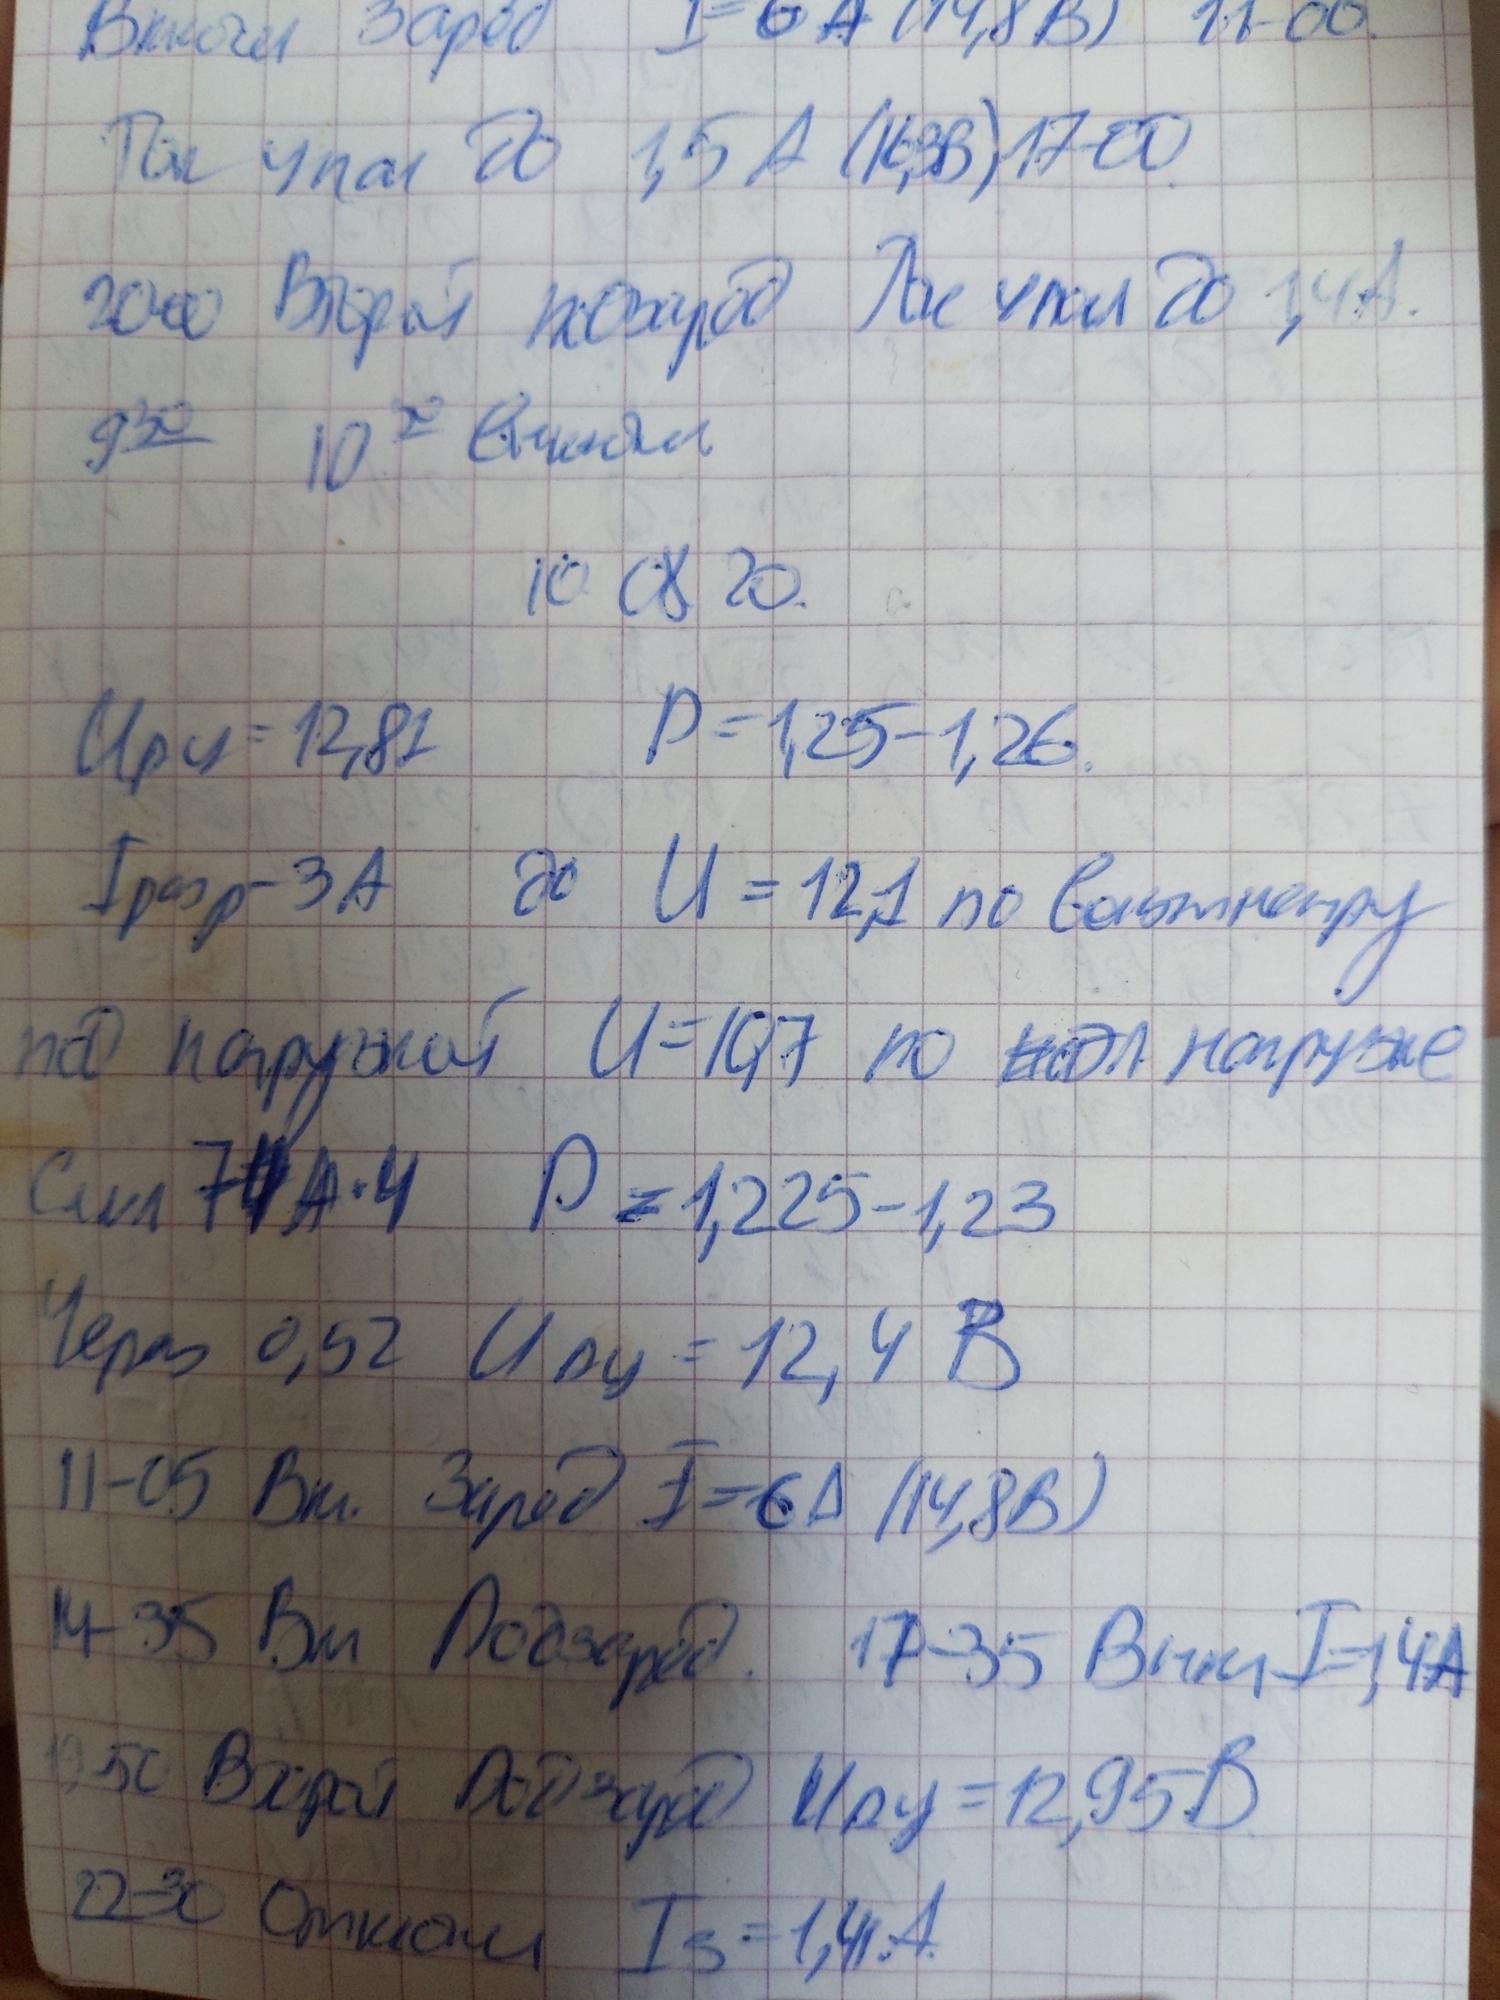 Включил Заряд I=6А (14,8В) 11-00.
Ток упал до 1,5А (16,3В) 17-00
20-00 Второй подзаряд Ток упал до 1,4А.
9 30 10 30
10 08 20.
Uрц=12,81 P=1,25-1,26.
Iразр-3А до U=12,1 по вольтметру
под нагрузкой U=10,7 по нагрузке
Снял 74А·ч P=1,225-1,23
Через 0,52 Uрц=12,4В
11-05 Вкл. Заряд I=6А (14,8В)
14-35 Вкл Подзаряд. 17-35 Выкл I=1,4А
19,50 Второй Подзаряд Uрц=12,95В
22-30 Отключил Iз=1,41А.